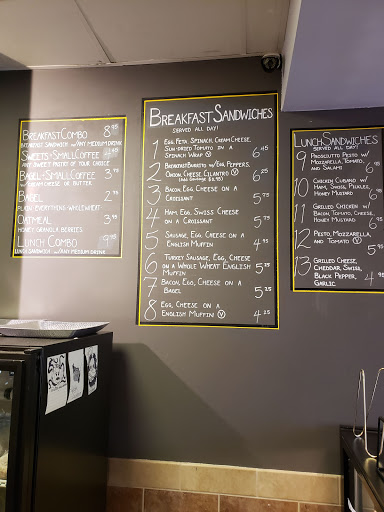 BREAKFAST COMBO 8.95
BREAKFAST SANDWICH W/ANY MEDIUM DRINK
SWEETS + SMALL COFFEE 4
ANY SWEET PASTRY OF YOUR CHOICE
BAGEL + SMALL COFFEE 3.75
W/ CREAM CHEESE OR BUTTER
BAGEL 2
PLAIN · EVERYTHING · WHOLEWHEAT
OATMEAL 3
HONEY · GRANOLA · BERRIES
LUNCH COMBO 9
LUNCH SANDWICH W/ANY MEDIUM DRINK
BREAKFAST SANDWICHES
SERVED ALL DAY!
1 EGG, FETA, SPINACH, CREAM CHEESE,
SUN-DRIED TOMATO ON A
SPINACH WRAP V 6.45
2 BREAKFAST BURRITO W/EGG, PEPPERS,
ONION, CHEESE, CILANTRO V 6.25
3 BACON, EGG, CHEESE ON A
CROISSANT 5.75
4 HAM, EGG, SWISS CHEESE
ON A CROISSANT 5.75
5 SAUSAGE, EGG, CHEESE ON A
ENGLISH MUFFIN 4.95
6 TURKEY SAUSAGE, EGG, CHEESE
ON A WHOLE WHEAT ENGLISH
MUFFIN 5.75
7 BACON, EGG, CHEESE ON A
BAGEL 5.25
8 EGG, CHEESE ON A
ENGLISH MUFFIN V 4.25
LUNCH SANDWICHES
SERVED ALL DAY!
9 PROSCIUTTO PESTO W/
MOZZARELLA, TOMATO,
AND SALAMI 6
10 CHICKEN CUBANO W/
HAM, SWISS, PICKLES,
HONEY MUSTARD 6
11 GRILLED CHICKEN W/
BACON, TOMATO, CHEESE,
HONEY MUSTARD 6
12 PESTO, MOZZARELLA,
AND TOMATO V 5
13 GRILLED CHEESE,
CHEDDAR, SWISS,
BLACK PEPPER,
GARLIC 4.95